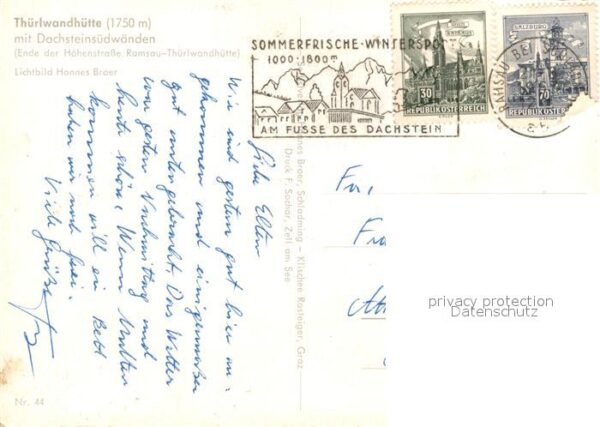 Thürlwandhütte (1750 m)
mit Dachsteinsüdwänden
(Ende der Höhenstraße, Ramsau-Thürlwandhütte)
Lichtbild Hannes Broer
SOMMERFRISCHE-WINTERSPO
1000-1800 m
AM FUSSE DES DACHSTEIN
WIEN
RATHAUS
30
REPUBLIK ÖSTERREICH
SALZBURG
70
REPUBLIK ÖSTERREICH
RAMSAU BEI
Liebe Eltern
Wir sind gestern gut hier an-
gekommen und einigermaßen
gut untergebracht. Das Wetter
war gestern Nachmittag und
heute schön. Wenn Mutter
kommen will ein Bett
haben wir noch frei.
Viele Grüße
Hannes Broer, Schladming - Klischee Rostaiger, Graz
Druck F. Sochor, Zell am See
Fa.
Fra
privacy protection
Datenschutz
Nr. 44